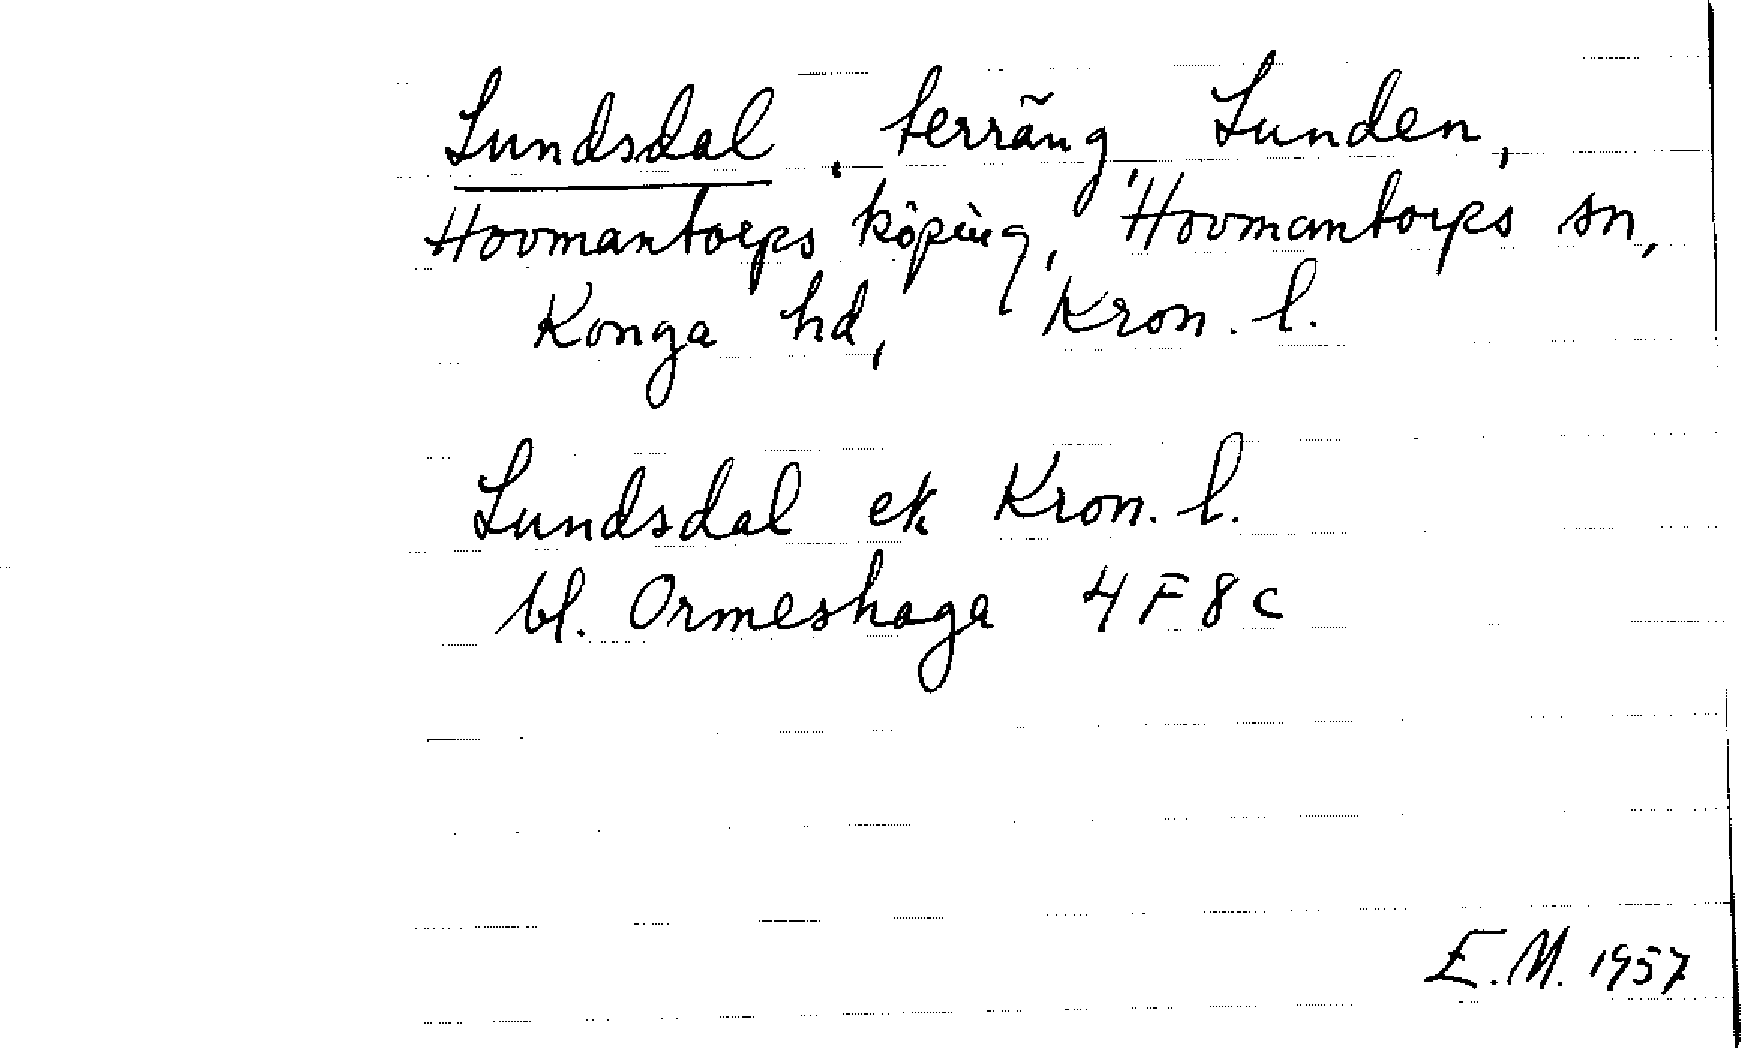 Lundsdal, terräng, Lunden,
Hovmantorps köping, Hovmantorps sn,
Konga hd, Kron. l.
Lundsdal ek Kron. l.
bl. Ormeshaga 4F8c
E.M. 1957